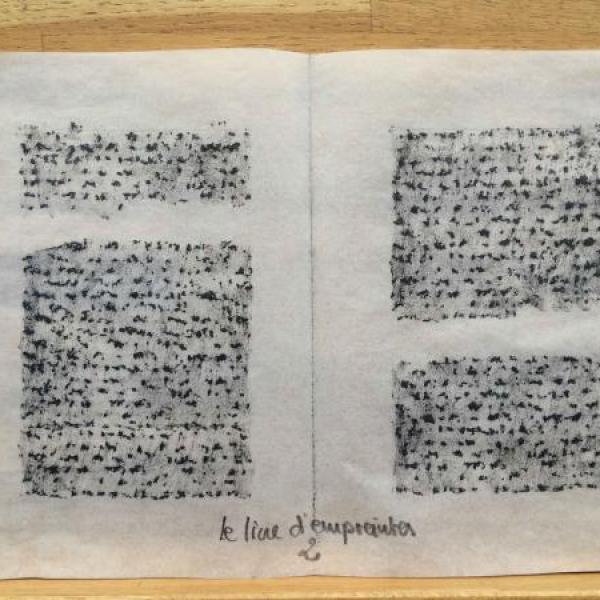 le livre d'empreintes
2